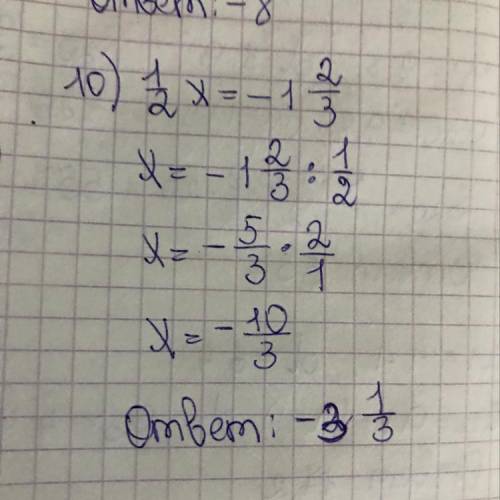 Ответ: -8
10) 1/2 x = -1 2/3
x = -1 2/3 : 1/2
x = -5/3 · 2/1
x = -10/3
Ответ: -3 1/3